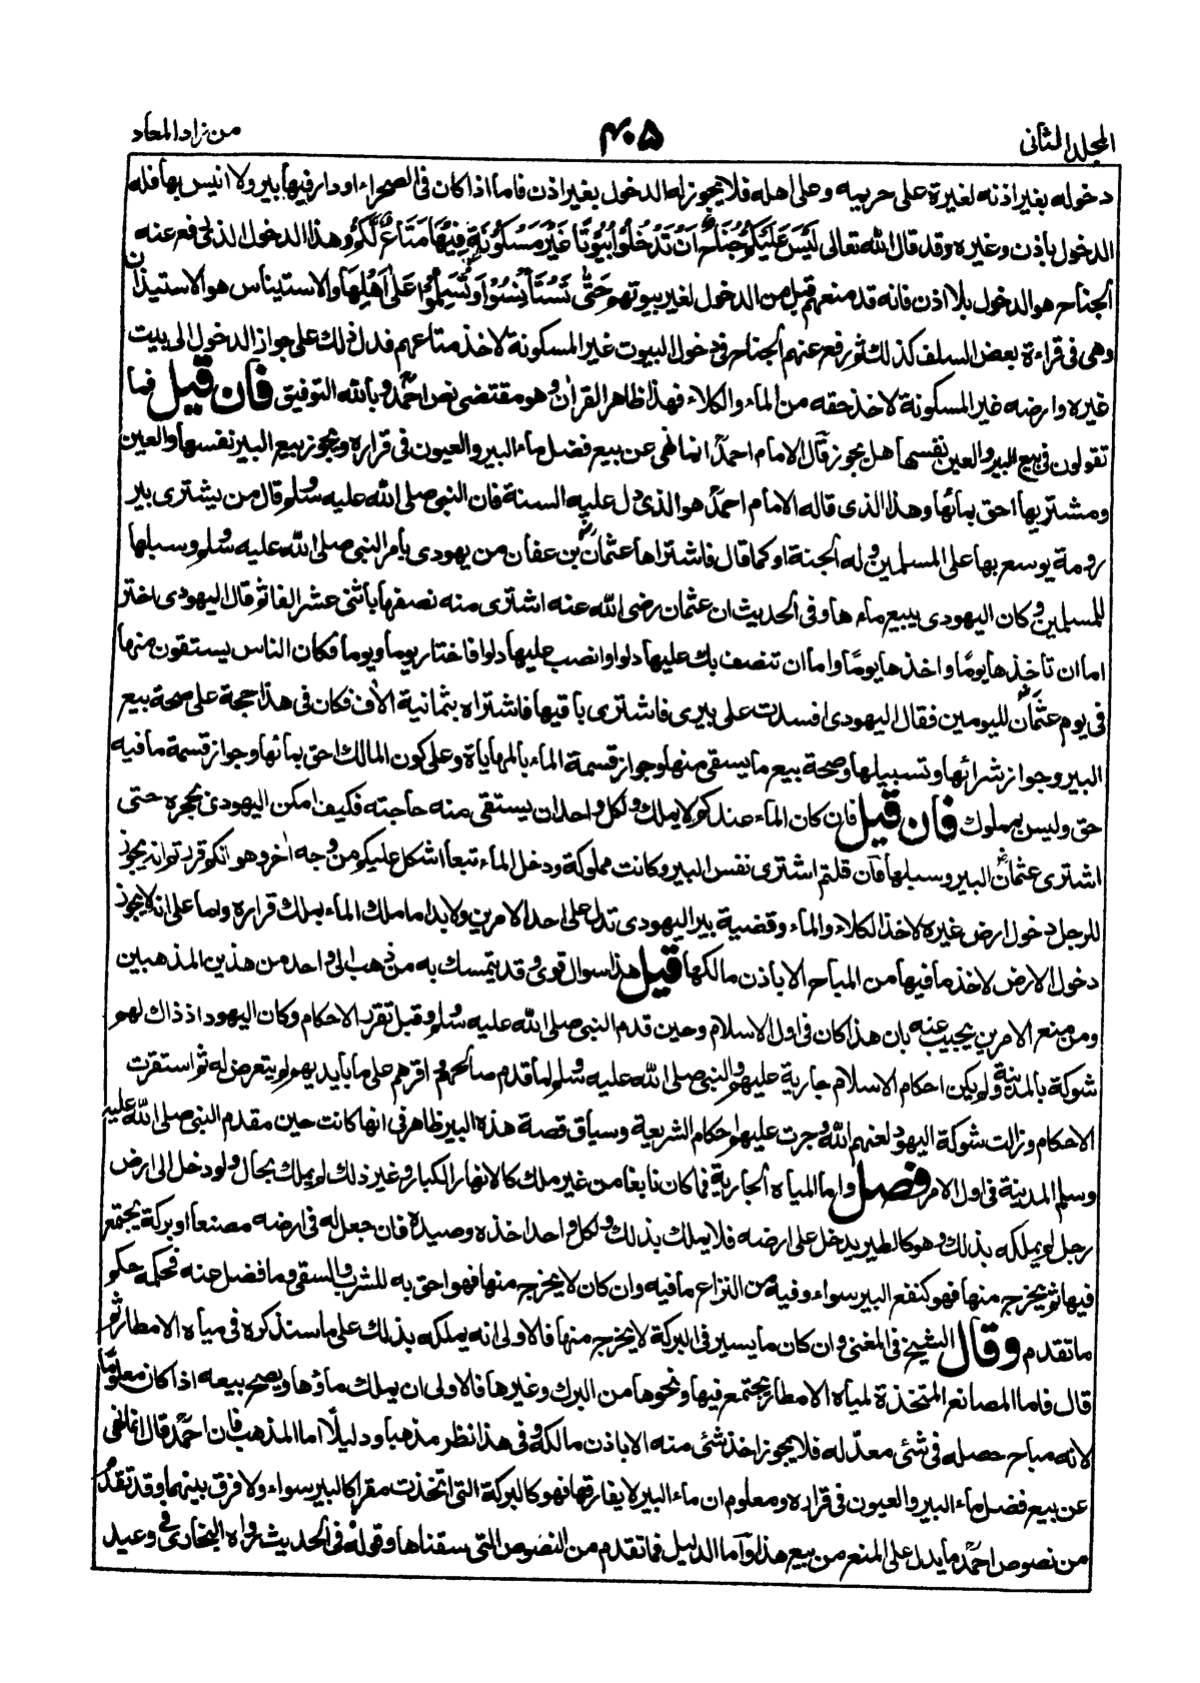 المجلد الثانى
۴۰۵
من زاد المعاد
دخوله بغير اذنه لغيرة على حريمه وعلى اهله فلا يجوز له الدخول بغير اذن فاما اذا كان فى الصحراء او دار فيها بير ولا انيس بها فله
الدخول باذن وغيره وقد قال الله تعالى لَيْسَ عَلَيْكُمْ جُنَاحٌ اَنْ تَدْخُلُوْا بُيُوْتًا غَيْرَ مَسْكُوْنَةٍ فِيْهَا مَتَاعٌ لَّكُمْ وهذا الدخول الذى رفع عنه
الجناح هو الدخول بلا اذن فانه قد منعهم قبل من الدخول لغير بيوتهم حَتّٰى تَسْتَاْنِسُوْا وَتُسَلِّمُوْا عَلٰى اَهْلِهَا والاستيناس هو الاستيذان
وهى فى قراءة بعض السلف كذلك ثم رفع عنهم الجناح فى دخول البيوت غير المسكونة لاخذ متاعهم فدل ذلك على جواز الدخول الى بيت
غيره وارضه غير المسكونة لاخذ حقه من الماء والكلاء فهذا ظاهر القران وهو مقتضى نص احمد وبالله التوفيق فان قيل فما
تقولون فى بيع البير والعين نفسها هل يجوز قال الامام احمد انما نهى عن بيع فضل ماء البير والعيون فى قراره ويجوز بيع البير نفسها والعين
ومشتريها احق بمائها وهذا الذى قاله الامام احمد هو الذى دل عليه السنة فان النبى صلى الله عليه وسلم قال من يشترى بير
رومة يوسع بها على المسلمين وله الجنة او كما قال فاشتراها عثمان بن عفان من يهودى بامر النبى صلى الله عليه وسلم وسبلها
للمسلمين وكان اليهودى يبيع ماءها وفى الحديث ان عثمان رضى الله عنه اشترى منه نصفها باثنى عشر الفا ثم قال اليهودى اختر
اما ان تاخذها يوما واخذها يوما واما ان تنصف بك عليها دلوا وانصب عليها دلوا فاختار يوما ويوما فكان الناس يستقون منها
فى يوم عثمان لليومين فقال اليهودى افسدت على بيرى فاشترى باقيها فاشتراه بثمانية الاف فكان فى هذا حجة على صحة بيع
البير وجواز شرائها وتسبيلها وصحة بيع ما يسقى منها وجواز قسمة الماء بالمهاياة وعلى كون المالك احق بمائها وجواز قسمة ما فيه
حق وليس بمملوك فان قيل فان كان الماء عندكم لا يملك ولكل واحد ان يستقى منه حاجته فكيف امكن اليهودى تحجره حتى
اشترى عثمان البير وسبلها فان قلتم اشترى نفس البير وكانت مملوكة ودخل الماء تبعا اشكل عليكم من وجه اخر وهو انكم قررتم انه يجوز
للرجل دخول ارض غيره لاخذ الكلاء والماء وقضية بير اليهودى تدل على احد الامرين ولا بد اما ملك الماء بملك قراره واما على انه لا يجوز
دخول الارض لاخذ ما فيها من المباح الا باذن مالكها قيل هذا سوال قوى وقد يتمسك به من ذهب الى واحد من هذين المذهبين
ومن منع الامرين يجيب عنه بان هذا كان فى اول الاسلام وحين قدم النبى صلى الله عليه وسلم وقبل تقرر الاحكام وكان اليهود اذ ذاك لهم
شوكة بالمدينة ولم يكن احكام الاسلام جارية عليهم والنبى صلى الله عليه وسلم لما قدم صالحهم واقرهم على ما بايديهم ولم يتعرض له ثم استقرت
الاحكام وزالت شوكة اليهود لعنهم الله وجرت عليهم احكام الشريعة وسياق قصة هذه البير ظاهر فى انها كانت حين مقدم النبى صلى الله عليه
وسلم المدينة فى اول الامر فصل واما المياه الجارية فما كان نابعا من غير ملك كالانهار الكبار وغير ذلك لم يملك بحال ولو دخل الى ارض
رجل لم يملكه بذلك وهو كالطير يدخل على ارضه فلا يملك بذلك ولكل واحد اخذه وصيده فان جعل له فى ارضه مصنعا او بركة يجتمع
فيها ثم يخرج منها فهو كنقع البير سواء وفيه من النزاع ما فيه وان كان لا يخرج منها فهو احق به للشرب والسقى وما فضل عنه فحكمه حكم
ما تقدم وقال الشيخ فى المغنى وان كان ما يسير فى البركة لا يخرج منها فالاولى انه يملكه بذلك على ما سنذكره فى مياه الامطار ثم
قال فاما المصانع المتخذة لمياه الامطار يجتمع فيها ونحوها من البرك وغيرها فالاولى ان يملك ماؤها ويصح بيعه اذا كان معلوما
لانه مباح حصله فى شئ معد له فلا يجوز اخذ شئ منه الا باذن مالكه وفى هذا نظر مذهبا ودليلا اما المذهب فان احمد قال انما نهى
عن بيع فضل ماء البير والعيون فى قراره ومعلوم ان ماء البير لا يفارقها فهو كالبركة التى اتخذت مقرا كالبير سواء ولا فرق بينهما وقد تقدم
من نصوص احمد ما يدل على المنع من بيع هذا واما الدليل فما تقدم من النصوص التى سقناها وقوله فى الحديث رواه البخارى فى وعيد